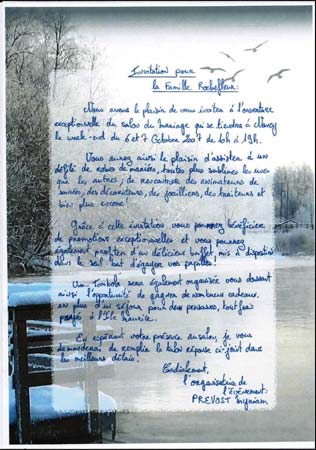 Invitation pour
la Famille Rochefleur:
Nous avons le plaisir de vous inviter à l'ouverture
exceptionnelle du salon du mariage qui se tiendra à Nancy
le week-end du 6 et 7 Octobre 2007 de 10h à 19h.
Vous aurez ainsi le plaisir d'assister à un
défilé de robes de mariées, toutes plus sublimes les unes
que les autres; de rencontrer des animateurs de
soirées, des décorateurs, des joailliers, des traiteurs et
bien plus encore!
Grâce à cette invitation vous pourrez bénéficier
de promotions exceptionnelles et vous pourrez
également profiter d'un délicieux buffet mis à disposition
dans le seul but d'égayer vos papilles!
Une Tombola sera également organisée vous donnant
ainsi l'opportunité de gagner de nombreux cadeaux,
en plus d'un séjour pour deux personnes, tout frais
payés à l'Ile Maurice.
En espérant votre présence au salon, je vous
demanderai de remplir le talon réponse ci-joint dans
les meilleurs délais!
Cordialement,
l'organisatrice de
l'évènement:
PREVOST Myriam